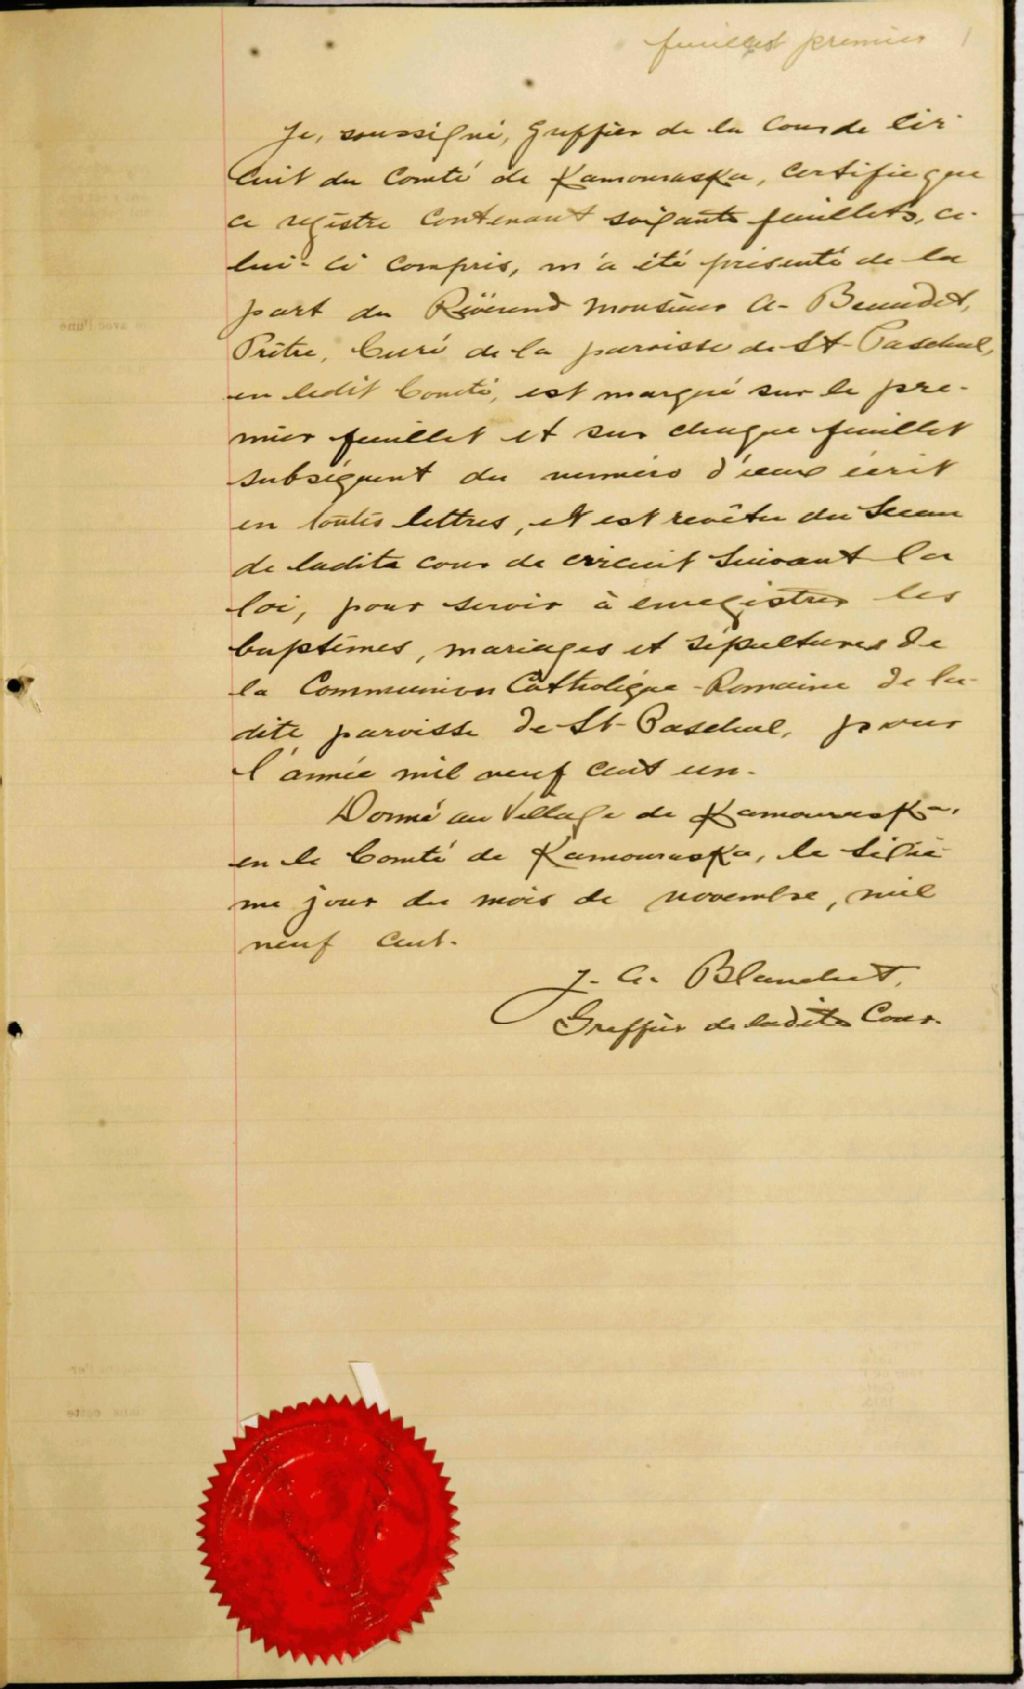 feuillet premier 1
Je, soussigné, Greffier de la Cour de Cir-
cuit du Comté de Kamouraska, certifie que
ce registre contenant soixante feuillets, ce-
lui-ci compris, m'a été présenté de la
part du Révérend Monsieur A- Beaudet,
Prêtre, Curé de la paroisse de St-Paschal,
en ledit Comté, est marqué sur le pre-
mier feuillet et sur chaque feuillet
subséquent du numéro d'iceux écrit
en toutes lettres, et est revêtu du Sceau
de ladite cour de circuit suivant la
loi, pour servir à enregistrer les
baptêmes, mariages et sépultures de
la Communion Catholique-Romaine de la-
dite paroisse de St-Paschal, pour
l'année mil neuf cent un-
Donné au Village de Kamouraska,
en le Comté de Kamouraska, le sixiè
me jour du mois de novembre, mil
neuf cent-
J- A- Blanchet,
Greffier de ladite Cour.